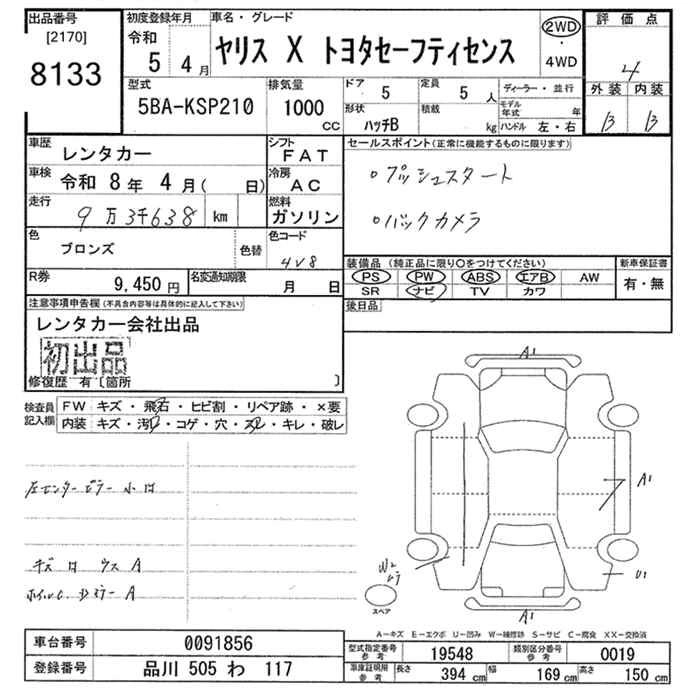 出品番号
[2170]
8133
初度登録年月
令和
5 4月
車名・グレード
ヤリス X トヨタセーフティセンス
2WD
・
4WD
評価点
4
外装 内装
B B
型式
5BA-KSP210
排気量
1000
cc
ドア 5
定員 5 人
形状 ハッチB
積載 kg
ディーラー・並行
モデル年式 年
ハンドル 左・右
車歴 レンタカー
シフト FAT
車検 令和 8年 4月( 日)
冷房 AC
走行 9万3千638 km
燃料 ガソリン
色 ブロンズ
色替
色コード 4V8
R券 9,450円
名変通知期限 月 日
セールスポイント(正常に機能するものに限ります)
○プッシュスタート
○バックカメラ
装備品(純正品に限り○をつけてください)
PS PW ABS エアB AW
SR ナビ TV カワ
新車保証書
有・無
後日品
注意事項申告欄(不具合内容等は具体的に記入して下さい)
レンタカー会社出品
初出品
修復歴 有〔箇所 〕
検査員記入欄
FW キズ・飛石・ヒビ割・リペア跡・×要
内装 キズ・汚レ・コゲ・穴・スレ・キレ・破レ
左センターピラー 小凹
キズ 凹 ウス A
A1
A1
U1
W2
スペア
A1
A-キズ E-エクボ U-凹み W-補修跡 S-サビ C-腐食 XX-交換済
車台番号 0091856
登録番号 品川 505 わ 117
型式指定番号参考 19548
類別区分番号参考 0019
車庫証明用参考 長さ 394 cm 幅 169 cm 高さ 150 cm